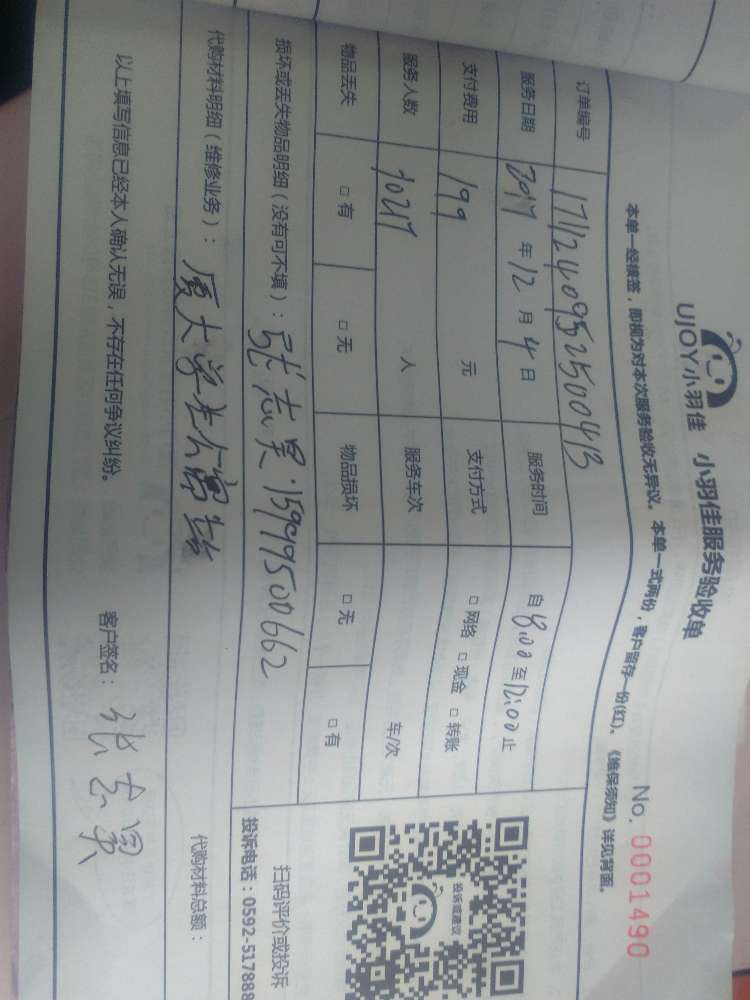 UJOY小羽佳 小羽佳服务验收单
No. 0001490
本单一经接签,即视为对本次服务验收无异议。本单一式两份,客户留存一份(红)。《维保须知》详见背面。
订单编号 171124095250041B
服务日期 2017 年 12 月 4 日 服务时间 自 8:00 至 12:00 止
支付费用 199 元 支付方式 □ 网络 □ 现金 □ 转账
服务人数 10217 人 服务车次 车/次
物品丢失 □ 有 □ 无 物品损坏 □ 无 □ 有
损坏或丢失物品明细(没有可不填): 张志昊 15999500662
投诉或建议
扫码评价或投诉
投诉电话:0592-517888
代购材料明细(维修业务): 厦大学生公寓 代购材料总额:
以上填写信息已经本人确认无误,不存在任何争议纠纷。 客户签名: 张志昊